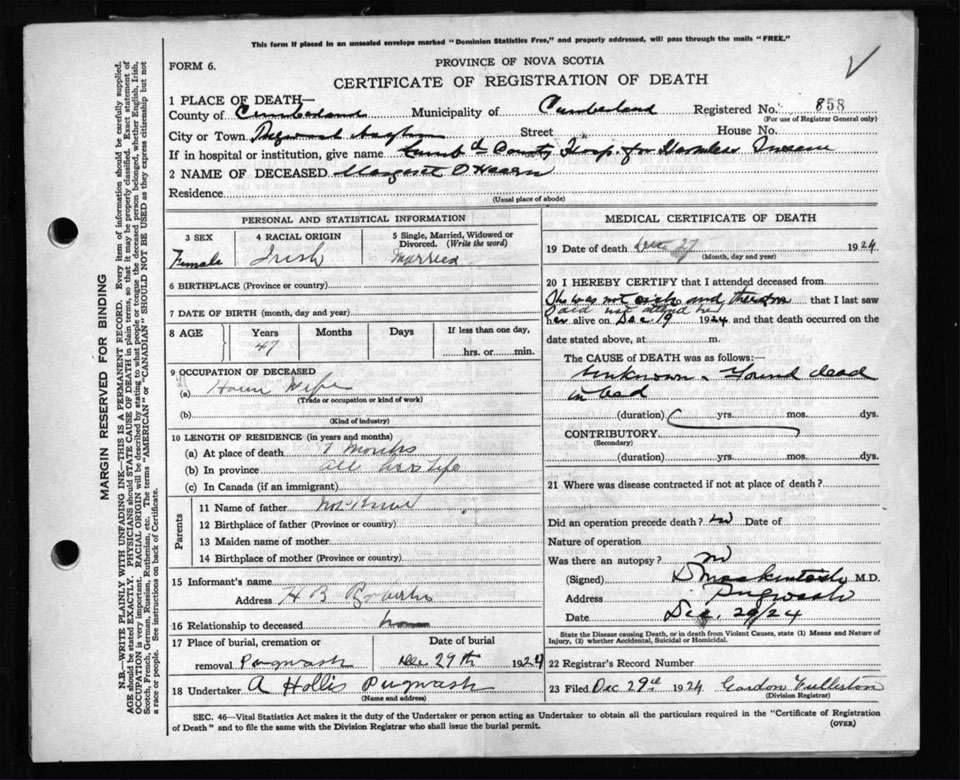 This form if placed in an unsealed envelope marked "Dominion Statistics Free," and properly addressed, will pass through the mails "FREE."
FORM 6.
PROVINCE OF NOVA SCOTIA
CERTIFICATE OF REGISTRATION OF DEATH
1 PLACE OF DEATH—
County of Cumberland Municipality of Cumberland Registered No. 858
(For use of Registrar General only)
City or Town Pugwash Street House No.
If in hospital or institution, give name Cumb'd County Hosp. for Harmless Insane
2 NAME OF DECEASED Margaret O'Hearn
Residence
(Usual place of abode)
PERSONAL AND STATISTICAL INFORMATION
3 SEX 4 RACIAL ORIGIN 5 Single, Married, Widowed or Divorced. (Write the word)
Female Irish Married
6 BIRTHPLACE (Province or country)
7 DATE OF BIRTH (month, day and year)
8 AGE Years Months Days If less than one day,
47 hrs. or min.
9 OCCUPATION OF DECEASED
(a) House Wife
(Trade or occupation or kind of work)
(b)
(Kind of industry)
10 LENGTH OF RESIDENCE (in years and months)
(a) At place of death 7 months
(b) In province all her life
(c) In Canada (if an immigrant)
Parents
11 Name of father
12 Birthplace of father (Province or country)
13 Maiden name of mother
14 Birthplace of mother (Province or country)
15 Informant's name
Address H B Roberts
16 Relationship to deceased
17 Place of burial, cremation or removal Pugwash Date of burial Dec 29th 1924
18 Undertaker A Hollis Pugwash
(Name and address)
MEDICAL CERTIFICATE OF DEATH
19 Date of death Dec 27 1924
(Month, day and year)
20 I HEREBY CERTIFY that I attended deceased from
She was not sick and therefore that I last saw
I did not attend her
her alive on Dec. 19 1924 and that death occurred on the
date stated above, at m.
The CAUSE OF DEATH was as follows:
Unknown - Found dead
in bed
(duration) yrs. mos. dys.
CONTRIBUTORY
(Secondary)
(duration) yrs. mos. dys.
21 Where was disease contracted if not at place of death?
Did an operation precede death? no Date of
Nature of operation
Was there an autopsy? no
(Signed) D Mackintosh M.D.
Address Pugwash
Date Dec. 29/24
State the Disease causing Death, or in death from Violent Causes, state (1) Means and Nature of Injury, (2) whether Accidental, Suicidal or Homicidal.
22 Registrar's Record Number
23 Filed Dec 29th 1924 Gordon
(Division Registrar)
SEC. 46—Vital Statistics Act makes it the duty of the Undertaker or person acting as Undertaker to obtain all the particulars required in the "Certificate of Registration
of Death" and to file the same with the Division Registrar who shall issue the burial permit.
(OVER)
MARGIN RESERVED FOR BINDING
N.B.—WRITE PLAINLY WITH UNFADING INK—THIS IS A PERMANENT RECORD. Every item of information should be carefully supplied.
AGE should be stated EXACTLY. PHYSICIANS should STATE CAUSE OF DEATH in plain terms, so that it may be properly classified. Exact statement of
OCCUPATION is very important. RACIAL ORIGIN will be described by stating to what people or tongue the deceased person belonged, whether English, Irish,
Scotch, French, German, Russian, Ruthenian, etc. The terms "AMERICAN" or "CANADIAN" SHOULD NOT BE USED as they express citizenship but not
a race or people. See instructions on back of Certificate.